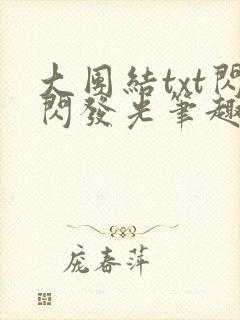 大團結txt閃
閃發光筆趣
庞春萍